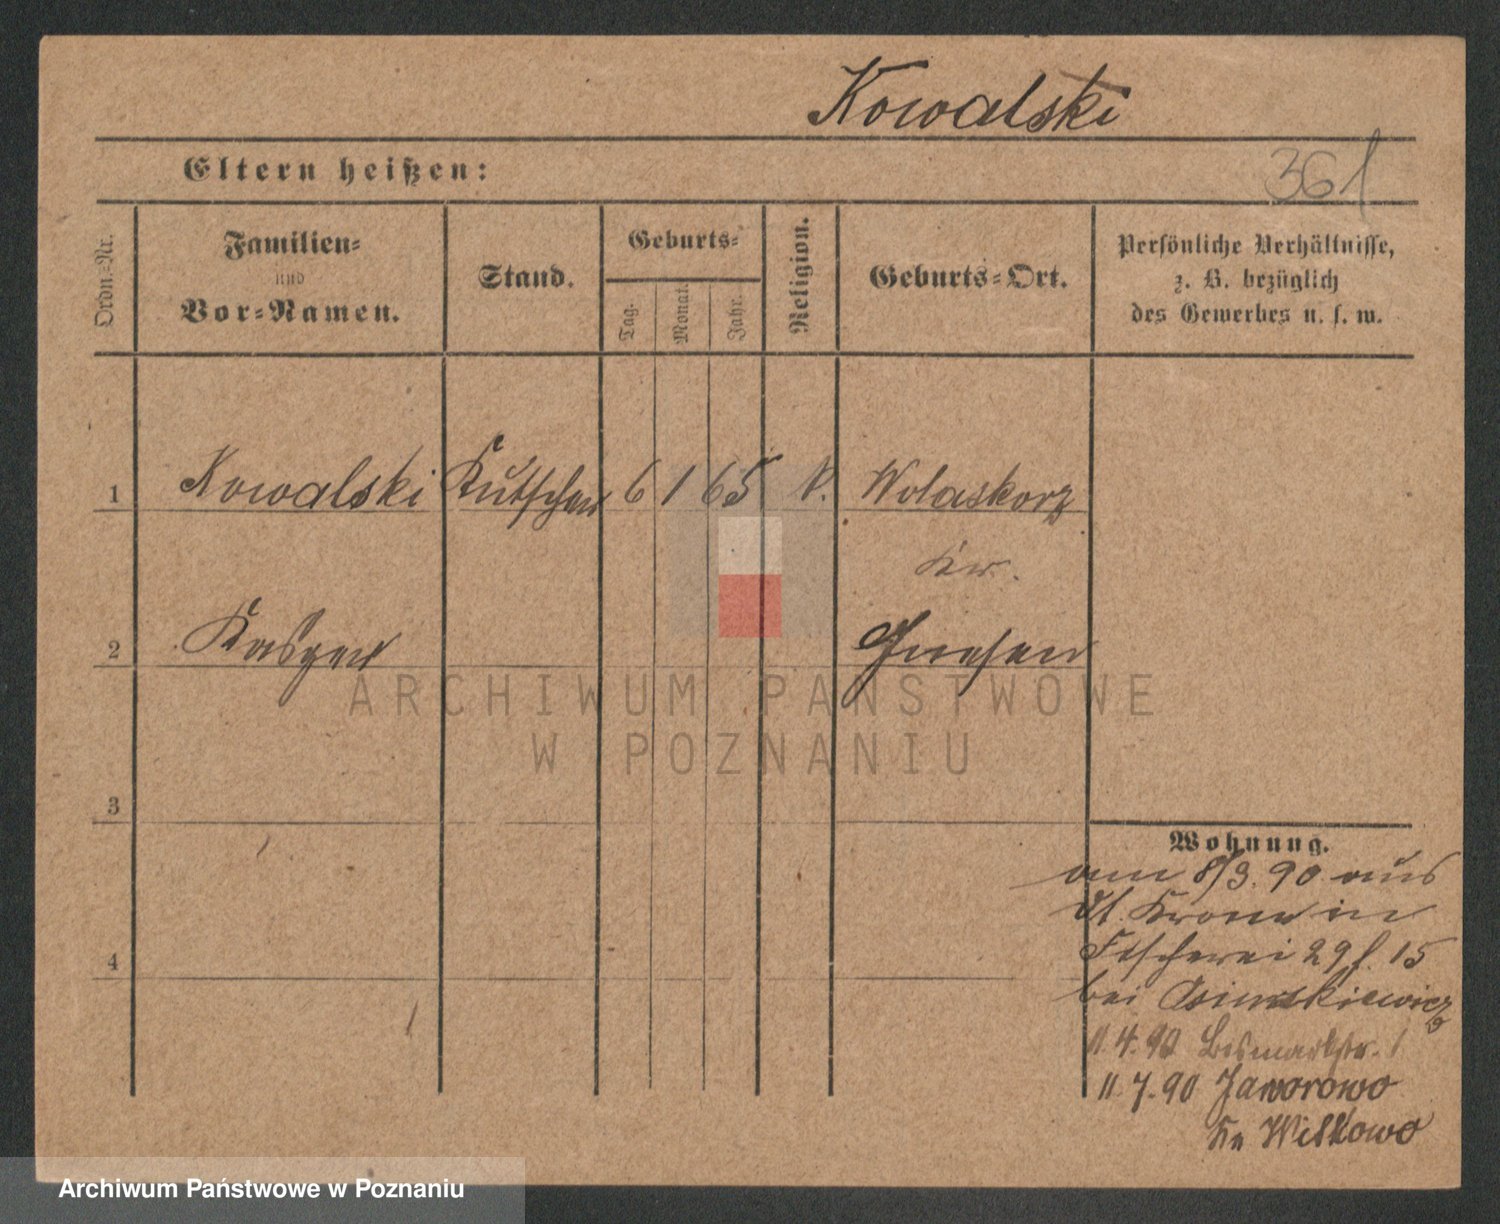 Kowalski
361
Eltern heißen:
Ordn.-Nr.
Familien-
und
Vor-Namen.
Stand.
Geburts-
Tag.
Monat.
Jahr.
Religion.
Geburts-Ort.
Persönliche Verhältnisse,
z. B. bezüglich
des Gewerbes u. s. w.
1 Kowalski Kutscher 6 1 65 k. Wolaskorz
Kr.
2 Kasper Gnesen
ARCHIWUM PAŃSTWOWE
W POZNANIU
3
4
Wohnung.
am 8/3. 90 aus
dt. Krone in
Fischerei 29 15
bei
11. 4. 90 Bismarckstr. 1
11. 7. 90 Jaworowo
Kr. Witkowo
Archiwum Państwowe w Poznaniu